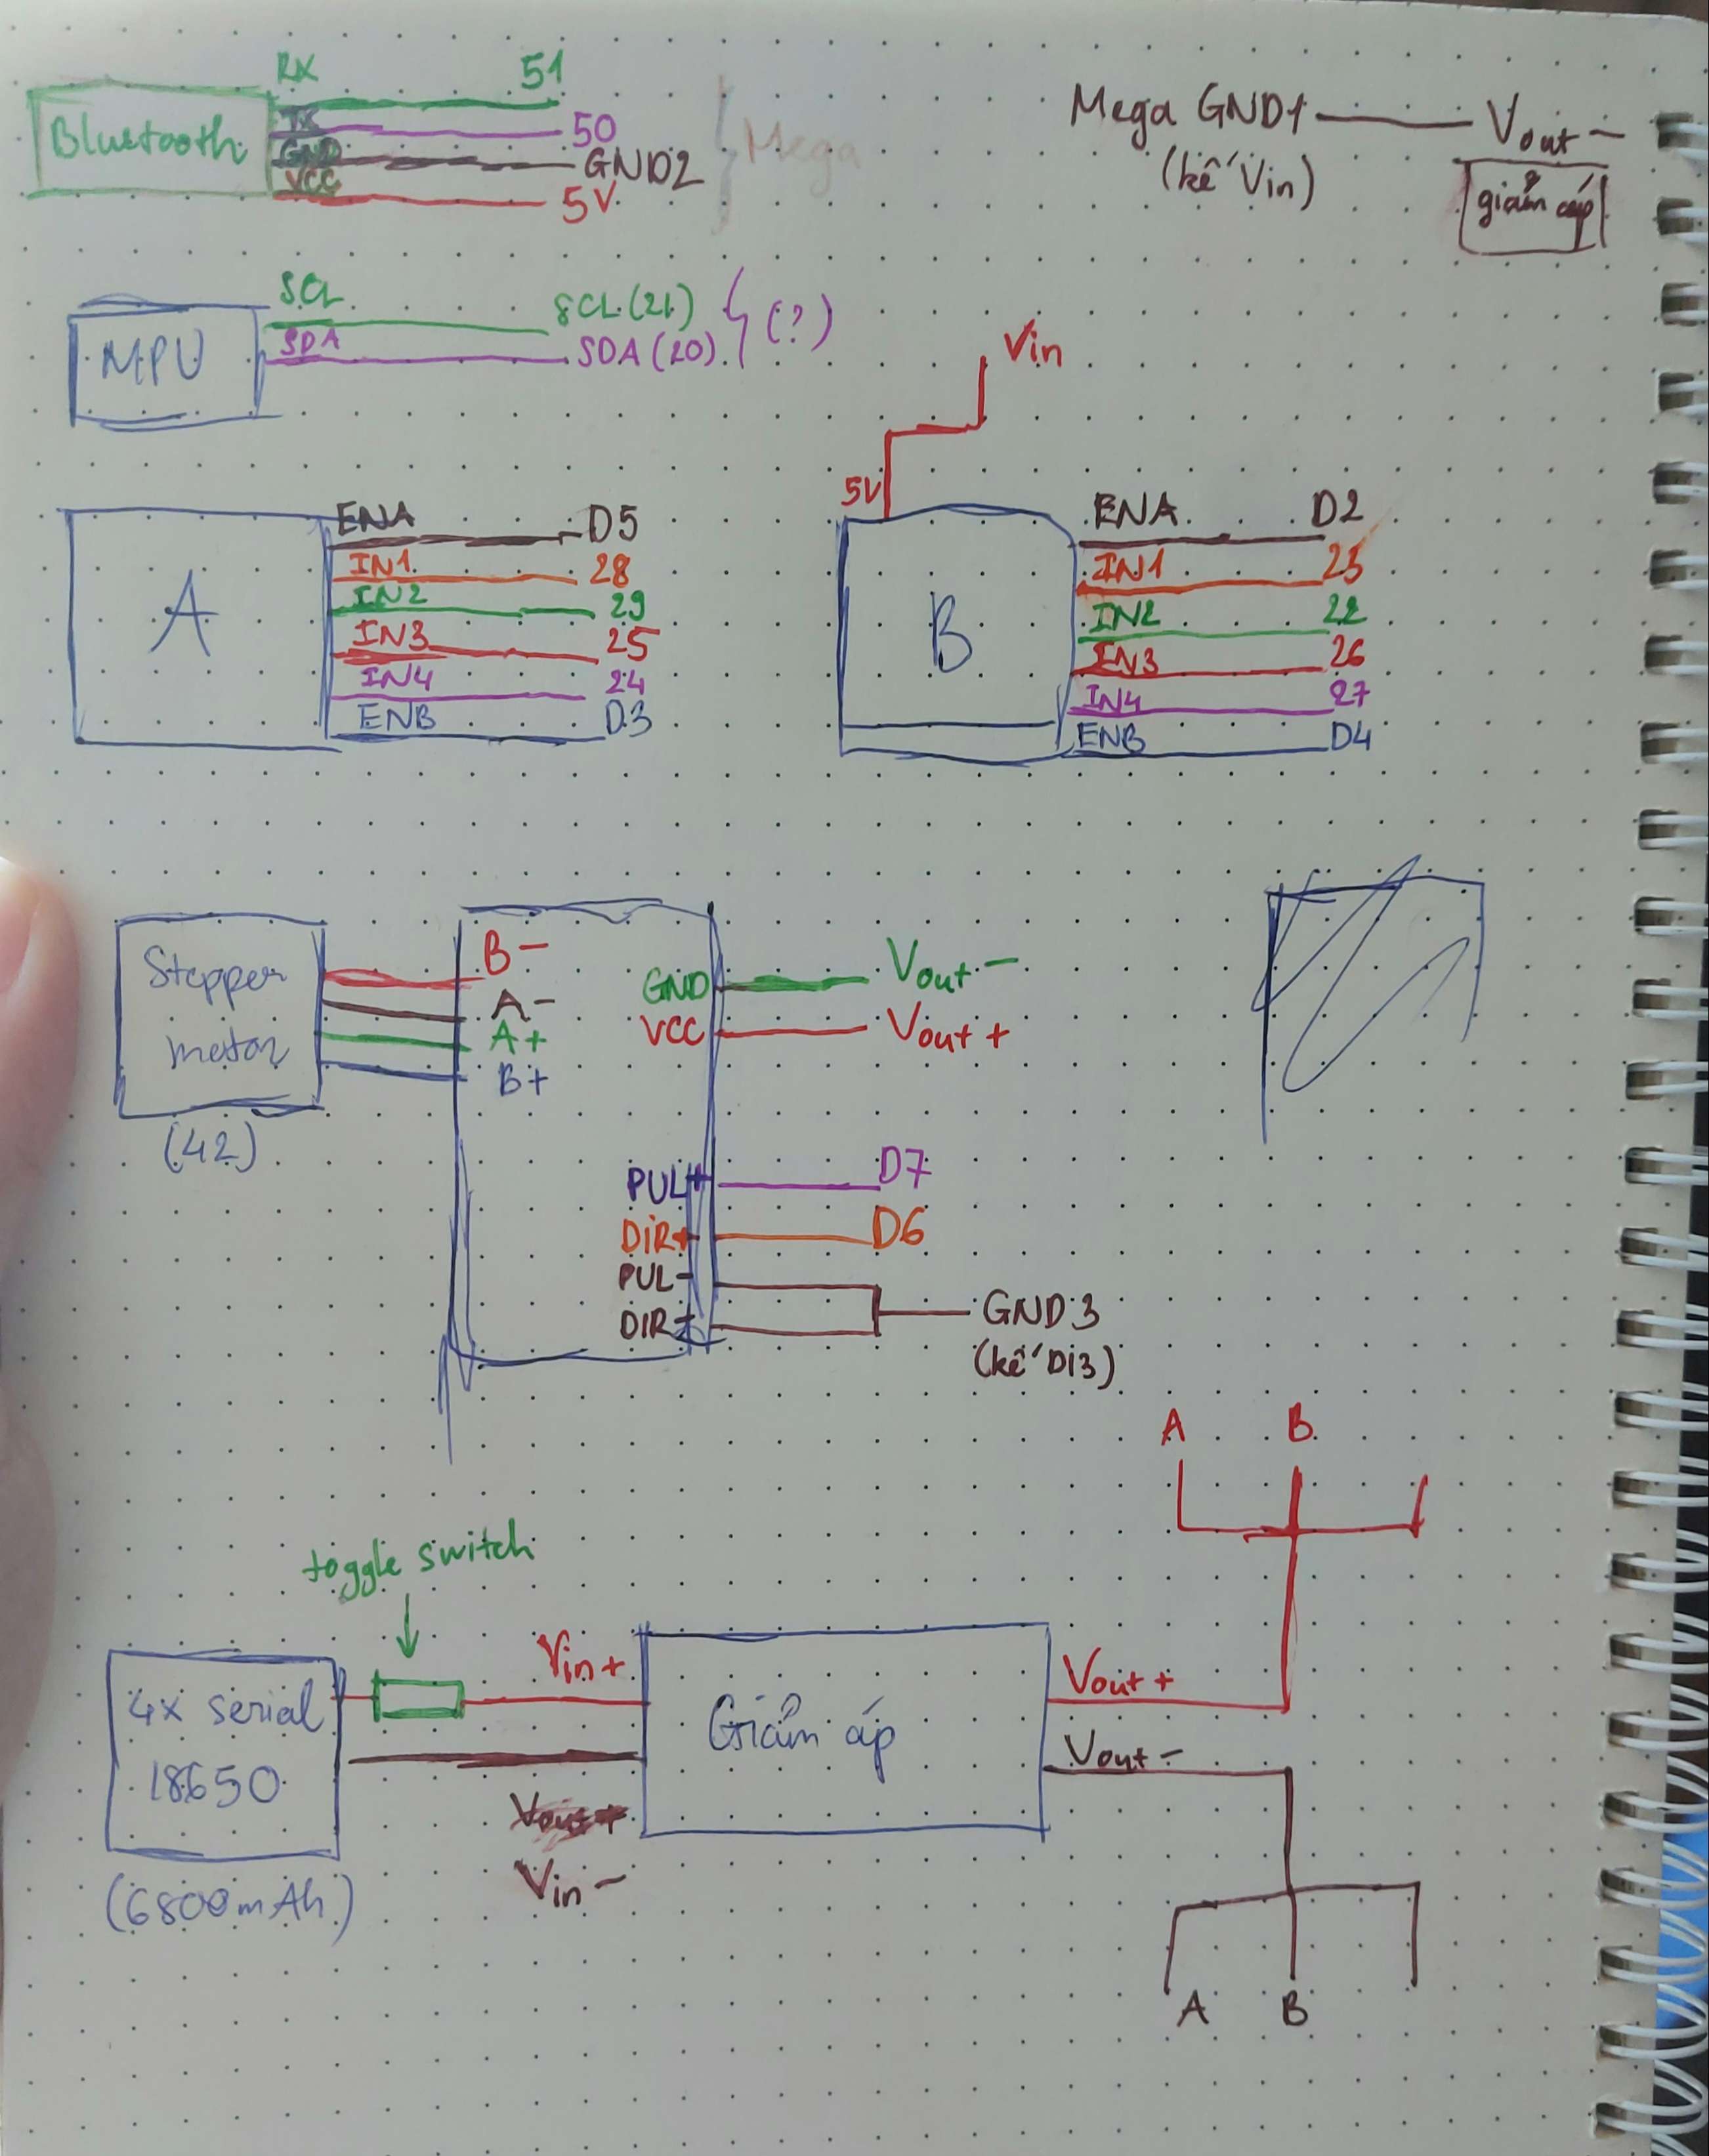 RX 51
Bluetooth
TX 50
GND GND2
VCC 5V
Mega
Mega GND1 Vout -
(kế Vin)
giảm áp
SCL SCL (21)
MPU
SDA SDA (20)
(?)
Vin
5V
A
ENA D5
IN1 28
IN2 29
IN3 25
IN4 24
ENB D3
B
ENA D2
IN1 23
IN2 22
IN3 26
IN4 27
ENB D4
Stepper
motor
(42)
B -
A -
A +
B +
GND Vout -
VCC Vout +
PUL+ D7
DIR+ D6
PUL-
DIR-
GND 3
(kế D13)
A B
toggle switch
4x serial
18650
(6800mAh)
Vin +
Vin -
Giảm áp
Vout +
Vout -
A B